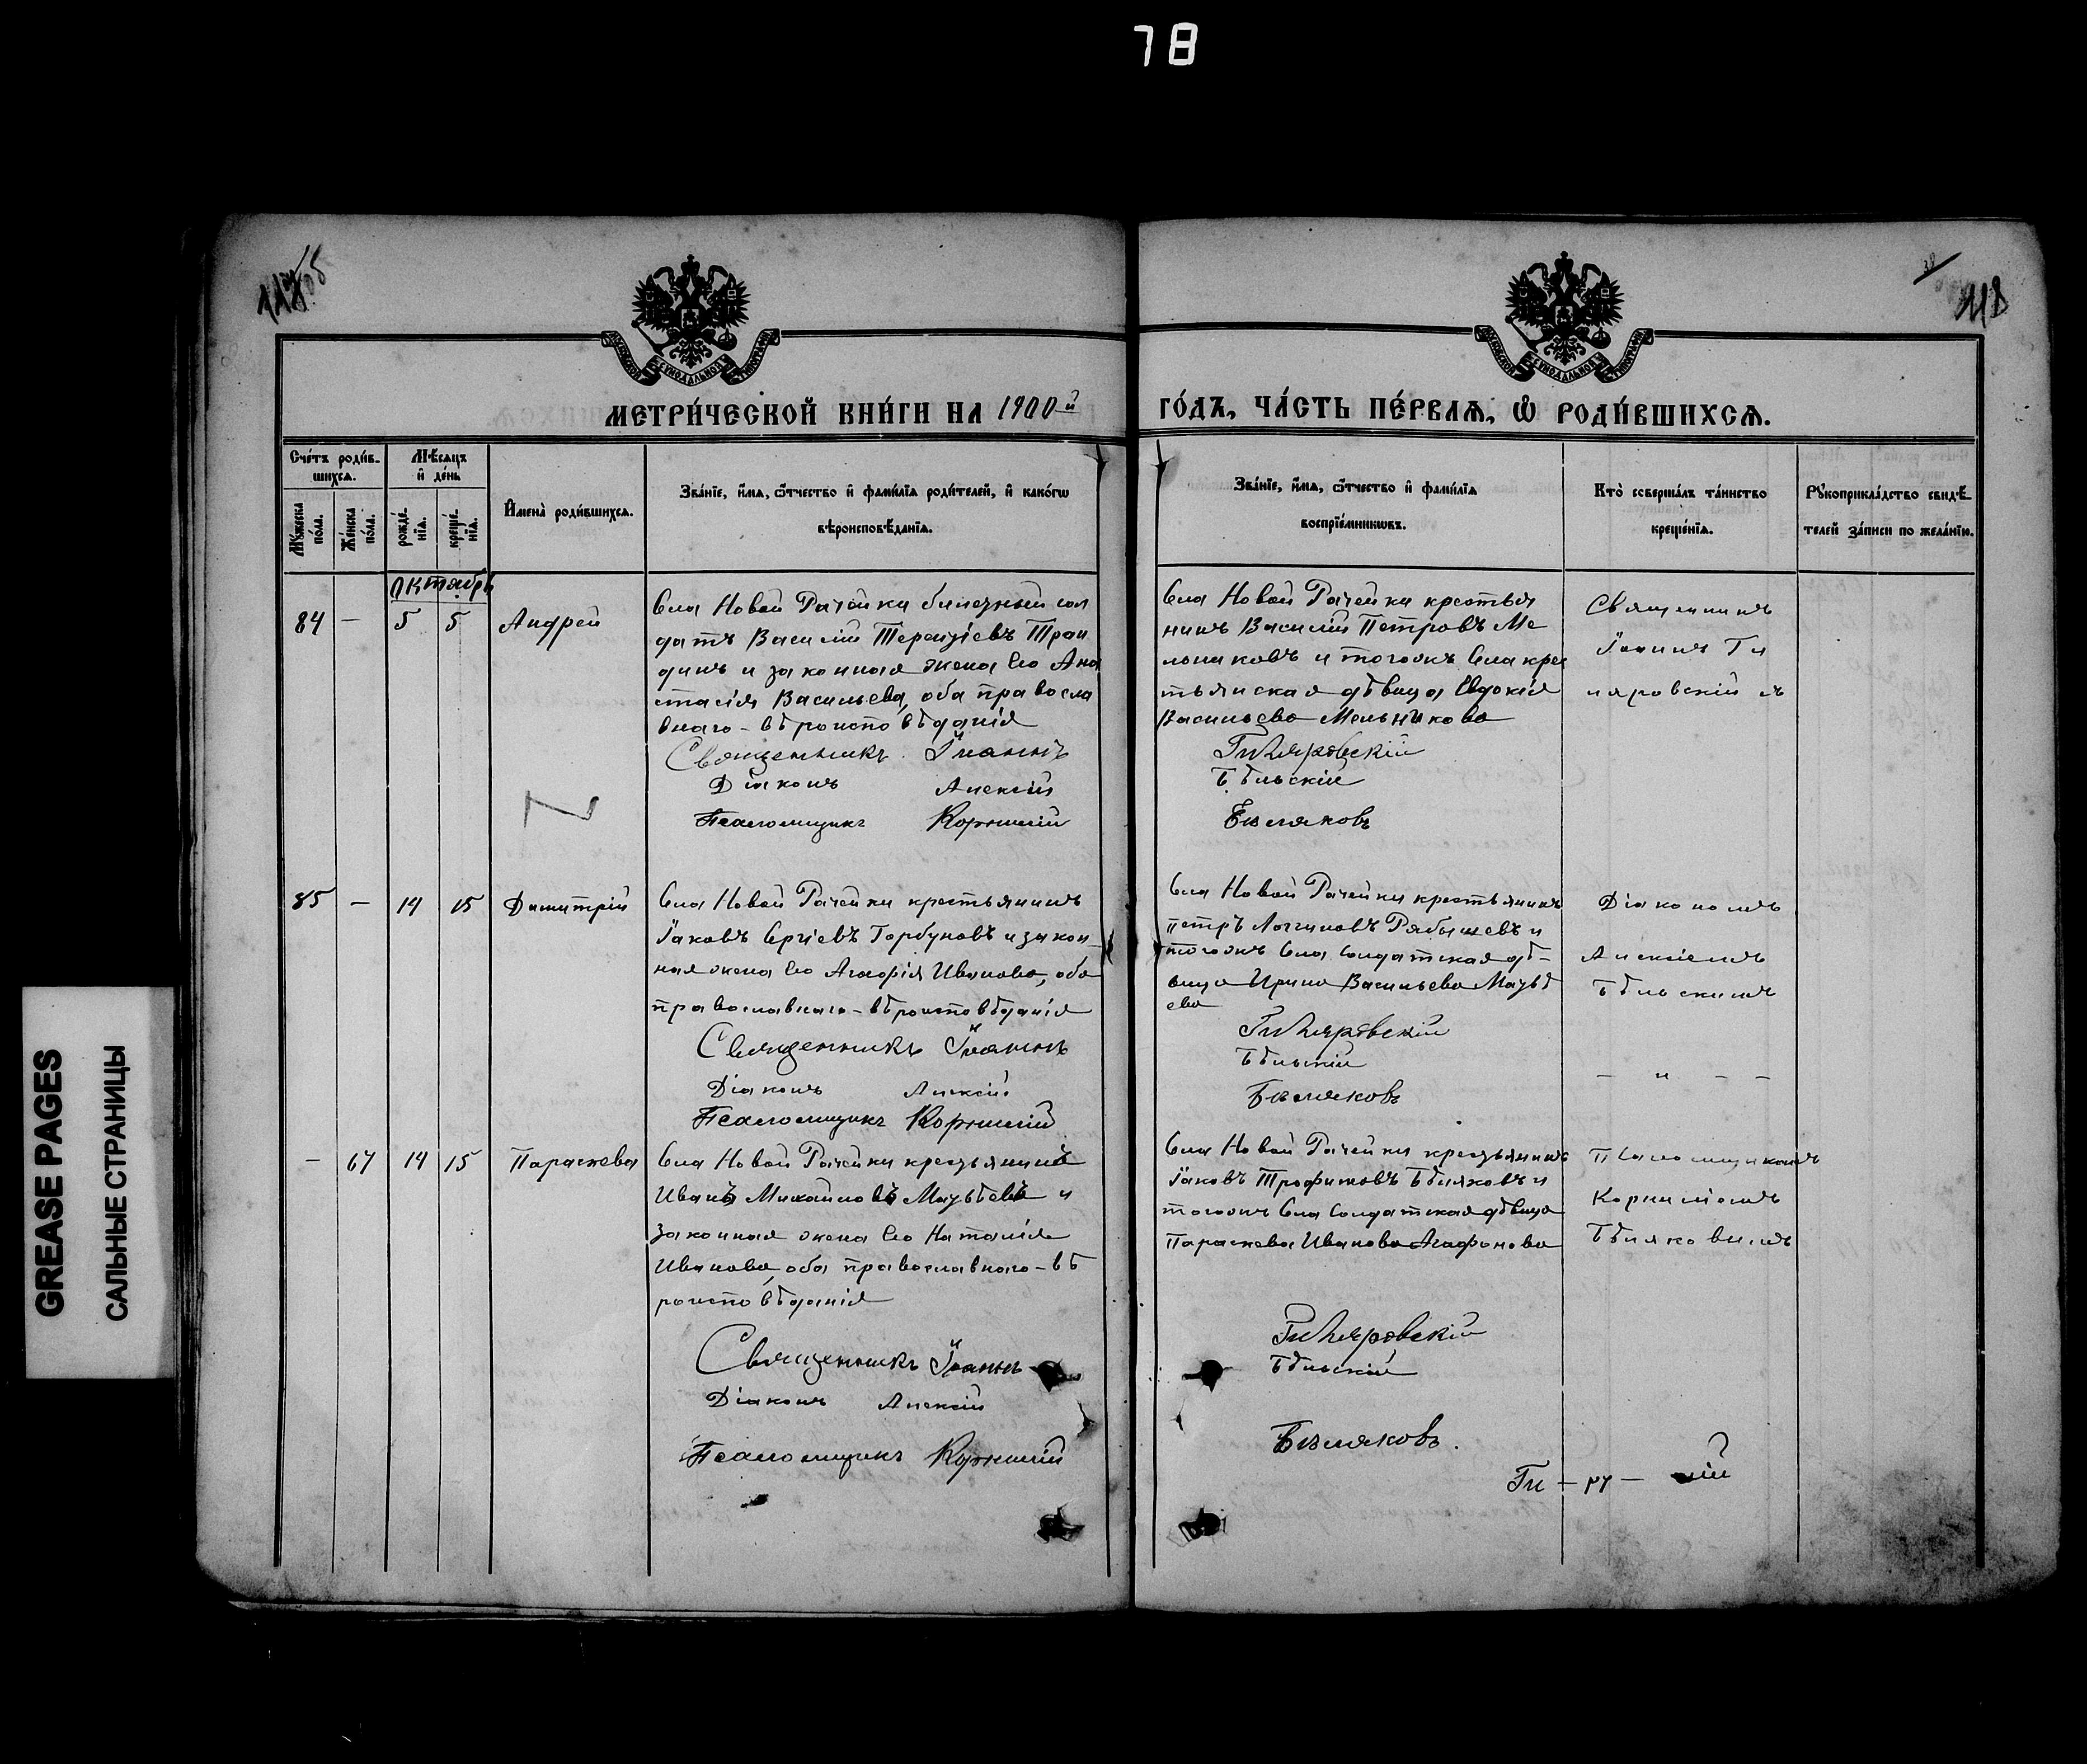 78
118
МЕТРИ́ЧЕСКОЙ КНИ́ГИ НА 1900й
ГО́ДЪ, ЧА́СТЬ ПЕ́РВАѦ, Ѽ РОДИ́ВШИХСѦ.
Сче́тъ роди́в-
шихсѧ.
Мꙋ́жеска по́ла.
Же́нска по́ла.
Мѣ́сѧцъ
и҆ де́нь
рожде́нїѧ.
креще́нїѧ.
И҆мена̀ роди́вшихсѧ.
Зва́нїе, и҆́мѧ, ѻ҆́тчество и҆ фами́лїѧ роди́телей, и҆ како́гѡ
вѣроисповѣ́данїѧ.
Зва́нїе, и҆́мѧ, ѻ҆́тчество и҆ фами́лїѧ
воспрїе́мникѡвъ.
Кто̀ соверша́лъ та́инство
креще́нїѧ.
Рꙋкоприкла́дство свидѣ́-
телей за́писи по жела́нїю.
Октябрь
84 — 5 5 Андрей
Села Новой Рачейки билетный сол
датъ Василій Терентіевъ Тран
динъ и законная жена его Ана
стасія Васильева, оба правосла
внаго - вѣроисповѣданія
Священникъ Іоаннъ
Діаконъ Алексій
Псаломщикъ Корнилій
Села Новой Рачейки крестья
нинъ Василій Петровъ Ме
льниковъ и тогожъ села крес
тьянская дѣвица Евдокія
Васильева Мельникова
Гиляровскій
Бѣльскій
Бѣляковъ
Священникъ
Іоаннъ Ги
ляровскій
85 — 14 15 Димитрій
Села Новой Рачейки крестьянинъ
Іаковъ Сергіевъ Горбуновъ и закон-
ная жена его Агафія Иванова, оба
православнаго - вѣроисповѣданія
Священникъ Іоаннъ
Діаконъ Алексій
Псаломщикъ Корнилій
Села Новой Рачейки крестьянинъ
Петръ Логгиновъ Рябышевъ и
тогожъ села солдатская дѣ-
вица Ирина Васильева Мазѣ
ева
Гиляровскій
Бѣльскій
Бѣляковъ
Діакономъ
Алексіемъ
Бѣльскимъ
— „ — —
— 67 14 15 Параскева
Села Новой Рачейки крестьянинъ
Иванъ Михайловъ Мазѣевъ и
законная жена его Наталія
Иванова, оба православнаго - вѣ
роисповѣданія
Священникъ Іоаннъ
Діаконъ Алексій
Псаломщикъ Корнилій
Села Новой Рачейки крестьянинъ
Іаковъ Трофимовъ Бѣляковъ и
тогожъ села солдатская дѣвица
Параскева Иванова Агафонова
Гиляровскій
Бѣльскій
Бѣляковъ.
Псаломщикомъ
Корниліемъ
Бѣляковымъ
Ги — — кій
GREASE PAGES
САЛЬНЫЕ СТРАНИЦЫ